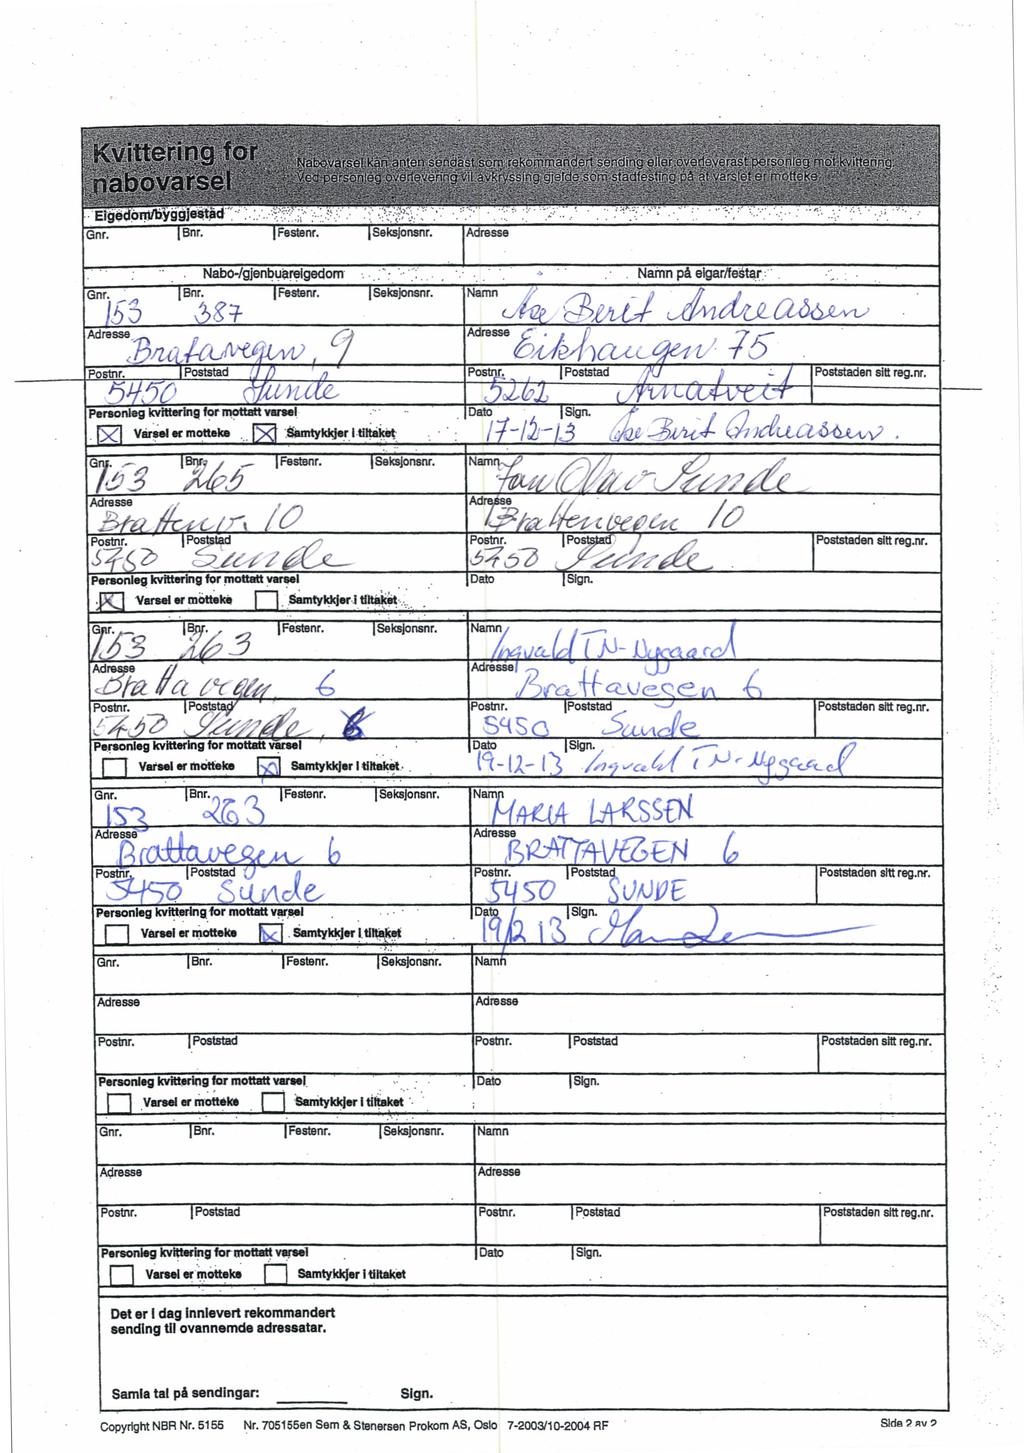 Kvittering for
nabovarsel
Nabovarsel kan anten sendast som rekommandert sending eller overleverast personleg mot kvittering.
Ved personleg overlevering vil avkryssing gjelde som stadfesting på at varslet er motteke.
Eigedom/byggjestad
Gnr. Bnr. Festenr. Seksjonsnr. Adresse
Nabo-/gjenbuareigedom Namn på eigar/festar
Gnr. Bnr. Festenr. Seksjonsnr. Namn
153 387 Berit Andreassen
Adresse Adresse
9 Eikhaugen 75
Postnr. Poststad Postnr. Poststad Poststaden sitt reg.nr.
5450 Sunde 5262 Arnatveit
Personleg kvittering for mottatt varsel Dato Sign.
Varsel er motteke Samtykkjer i tiltaket 17-12-13 Berit Andreassen.
Gnr. Bnr. Festenr. Seksjonsnr. Namn
153 265 Jan Olav Sunde
Adresse Adresse
10 Brattenvegen 10
Postnr. Poststad Postnr. Poststad Poststaden sitt reg.nr.
5450 Sunde 5450 Sunde
Personleg kvittering for mottatt varsel Dato Sign.
Varsel er motteke Samtykkjer i tiltaket
Gnr. Bnr. Festenr. Seksjonsnr. Namn
153 263 Ingvald TN-Nygaard
Adresse Adresse
Brattavegen 6 Brattavegen 6
Postnr. Poststad Postnr. Poststad Poststaden sitt reg.nr.
5450 Sunde, 5450 Sunde
Personleg kvittering for mottatt varsel Dato Sign.
Varsel er motteke Samtykkjer i tiltaket 19-12-13 Ingvald TN-Nygaard
Gnr. Bnr. Festenr. Seksjonsnr. Namn
153 263 MARIA LARSSEN
Adresse Adresse
Brattavegen 6 BRATTAVEGEN 6
Postnr. Poststad Postnr. Poststad Poststaden sitt reg.nr.
5450 Sunde 5450 SUNDE
Personleg kvittering for mottatt varsel Dato Sign.
Varsel er motteke Samtykkjer i tiltaket 19/12 13
Gnr. Bnr. Festenr. Seksjonsnr. Namn
Adresse Adresse
Postnr. Poststad Postnr. Poststad Poststaden sitt reg.nr.
Personleg kvittering for mottatt varsel Dato Sign.
Varsel er motteke Samtykkjer i tiltaket
Gnr. Bnr. Festenr. Seksjonsnr. Namn
Adresse Adresse
Postnr. Poststad Postnr. Poststad Poststaden sitt reg.nr.
Personleg kvittering for mottatt varsel Dato Sign.
Varsel er motteke Samtykkjer i tiltaket
Det er i dag innlevert rekommandert
sending til ovannemde adressatar.
Samla tal på sendingar: Sign.
Copyright NBR Nr. 5155 Nr. 705155en Sem & Stenersen Prokom AS, Oslo 7-2003/10-2004 RF Side 2 av 2